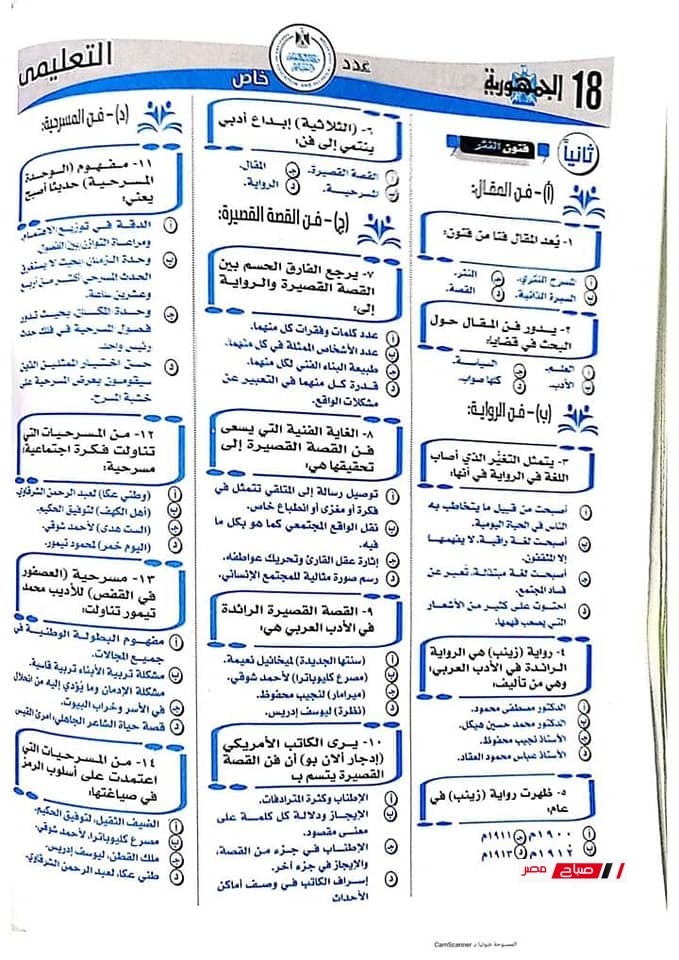 18 الجمهورية
عدد
خاص
التعليمى
ثانياً
فنون النثر
(أ)- فن المقال:
١- يُعد المقال فنا من فنون:
أ المسرح النثري. ج النثر.
ب السيرة الذاتية. د القصة.
٢- يدور فن المقال حول
البحث في قضايا:
أ العلم. ج السياسة.
ب الأدب. د كلها صواب.
(ب)- فن الرواية:
٣- يتمثل التغيُّر الذي أصاب
اللغة في الرواية في أنها:
أ أصبحت من قبيل ما يتخاطب به
الناس في الحياة اليومية.
ب أصبحت لغة راقية، لا يفهمها
إلا المثقفون.
ج أصبحت لغة مبتذلة، تُعبر عن
فساد المجتمع.
د احتوت على كثير من الأشعار
التي يصعب فهمها.
٤- رواية (زينب) هي الرواية
الرائدة في الأدب العربي؛
وهي من تأليف:
أ الدكتور مصطفى محمود.
ب الدكتور محمد حسين هيكل.
ج الأستاذ نجيب محفوظ.
د الأستاذ عباس محمود العقاد.
٥- ظهرت رواية (زينب) في
عام:
أ ١٩٠٠م ج ١٩١١م
ب ١٩١٢م د ١٩١٣م
٦- (الثلاثية) إبداع أدبي
ينتمي إلى فن:
أ القصة القصيرة. ج المقال.
ب المسرحية. د الرواية.
(ج)- فن القصة القصيرة:
٧- يرجع الفارق الحسم بين
القصة القصيرة والرواية
إلى:
أ عدد كلمات وفقرات كل منهما.
ب عدد الأشخاص الممثلة في كل منهما.
ج طبيعة البناء الفني لكل منهما.
د قدرة كل منهما في التعبير عن
مشكلات الواقع.
٨- الغاية الفنية التي يسعى
فن القصة القصيرة إلى
تحقيقها هي:
أ توصيل رسالة إلى المتلقي تتمثل في
فكرة أو مغزى أو انطباع خاص.
ب نقل الواقع المجتمعي كما هو بكل ما
فيه.
ج إثارة عقل القارئ وتحريك عواطفه.
د رسم صورة مثالية للمجتمع الإنساني.
٩- القصة القصيرة الرائدة
في الأدب العربي هي:
أ (سنتها الجديدة) لميخائيل نعيمة.
ب (مصرع كليوباترا) لأحمد شوقي.
ج (ميرامار) لنجيب محفوظ.
د (نظرة) ليوسف إدريس.
١٠- يرى الكاتب الأمريكي
(إدجار ألان بو) أن فن القصة
القصيرة يتسم بـ
أ الإطناب وكثرة المترادفات.
ب الإيجاز ودلالة كل كلمة على
معنى مقصود.
ج الإطناب في جزء من القصة،
والإيجاز في جزء آخر.
د إسراف الكاتب في وصف أماكن
الأحداث
(د)- فن المسرحية:
١١- مفهوم (الوحدة
المسرحية) حديثا أصبح
يعني:
أ الدقة في توزيع الاهتمام،
ومراعاة التوازن بين الفصول.
ب وحدة الزمان؛ بحيث لا يستغرق
الحدث المسرحي أكثر من أربع
وعشرين ساعة.
ج وحدة المكان، بحيث تدور
فصول المسرحية في فلك حدث
رئيس واحد.
د حسن اختيار الممثلين الذين
سيقومون بعرض المسرحية على
خشبة المسرح.
١٢- من المسرحيات التي
تناولت فكرة اجتماعية؛
مسرحية:
أ (وطني عكا) لعبد الرحمن الشرقاوي
ب (أهل الكهف) لتوفيق الحكيم.
ج (الست هدى) لأحمد شوقي.
د (اليوم خمر) لمحمود تيمور.
١٣- مسرحية (العصفور
في القفص) للأديب محمد
تيمور تناولت:
أ مفهوم البطولة الوطنية في
جميع المجالات.
ب مشكلة تربية الأبناء تربية قاسية.
ج مشكلة الإدمان وما يُؤدي إليه من انحلال
في الأسر وخراب البيوت.
د قصة حياة الشاعر الجاهلي امرئ القيس
١٤- من المسرحيات التي
اعتمدت على أسلوب الرمز
في صياغتها:
أ الضيف الثقيل، لتوفيق الحكيم.
ب مصرع كليوباترا، لأحمد شوقي.
ج ملك القطن، ليوسف إدريس.
د طني عكا، لعبد الرحمن الشرقاوي
صباح مصر
الممسوحة ضوئيا بـ CamScanner